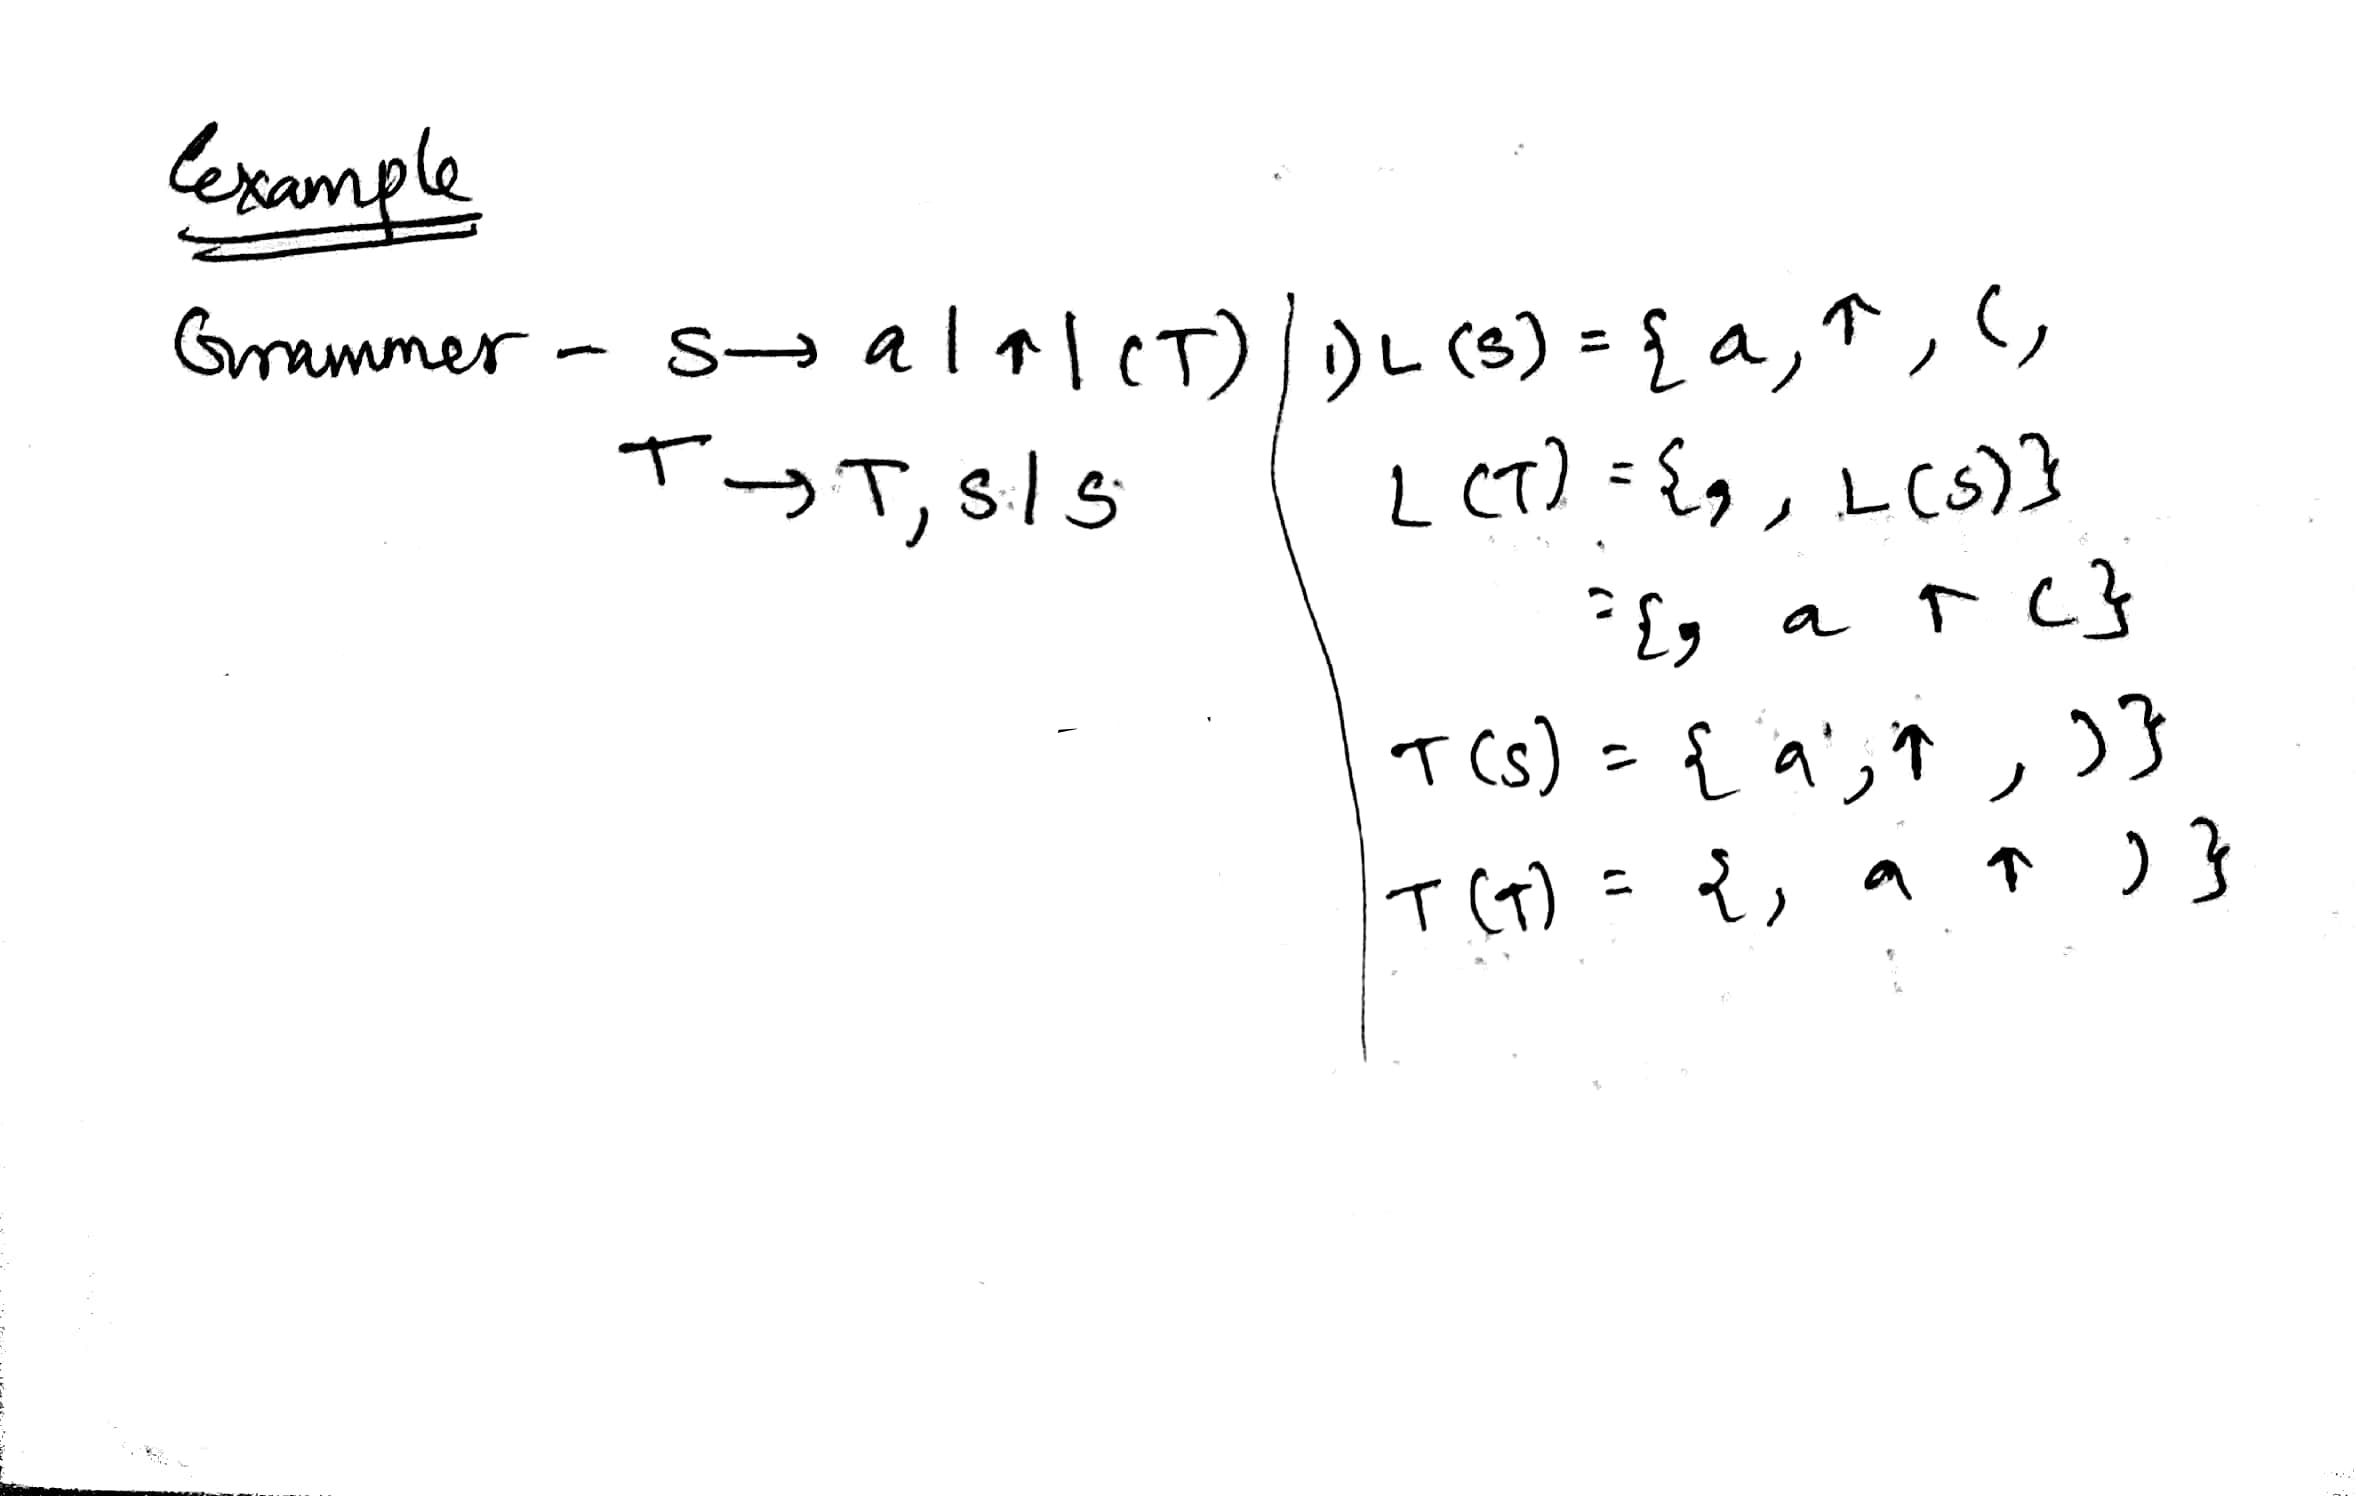 Example
Grammer - S → a | ↑ | (T)
T → T, S | S
1) L(S) = { a, ↑, (,
L(T) = {, , L(S)}
= {, a ↑ ( }
T(S) = { a, ↑, ) }
T(T) = {, a ↑ ) }